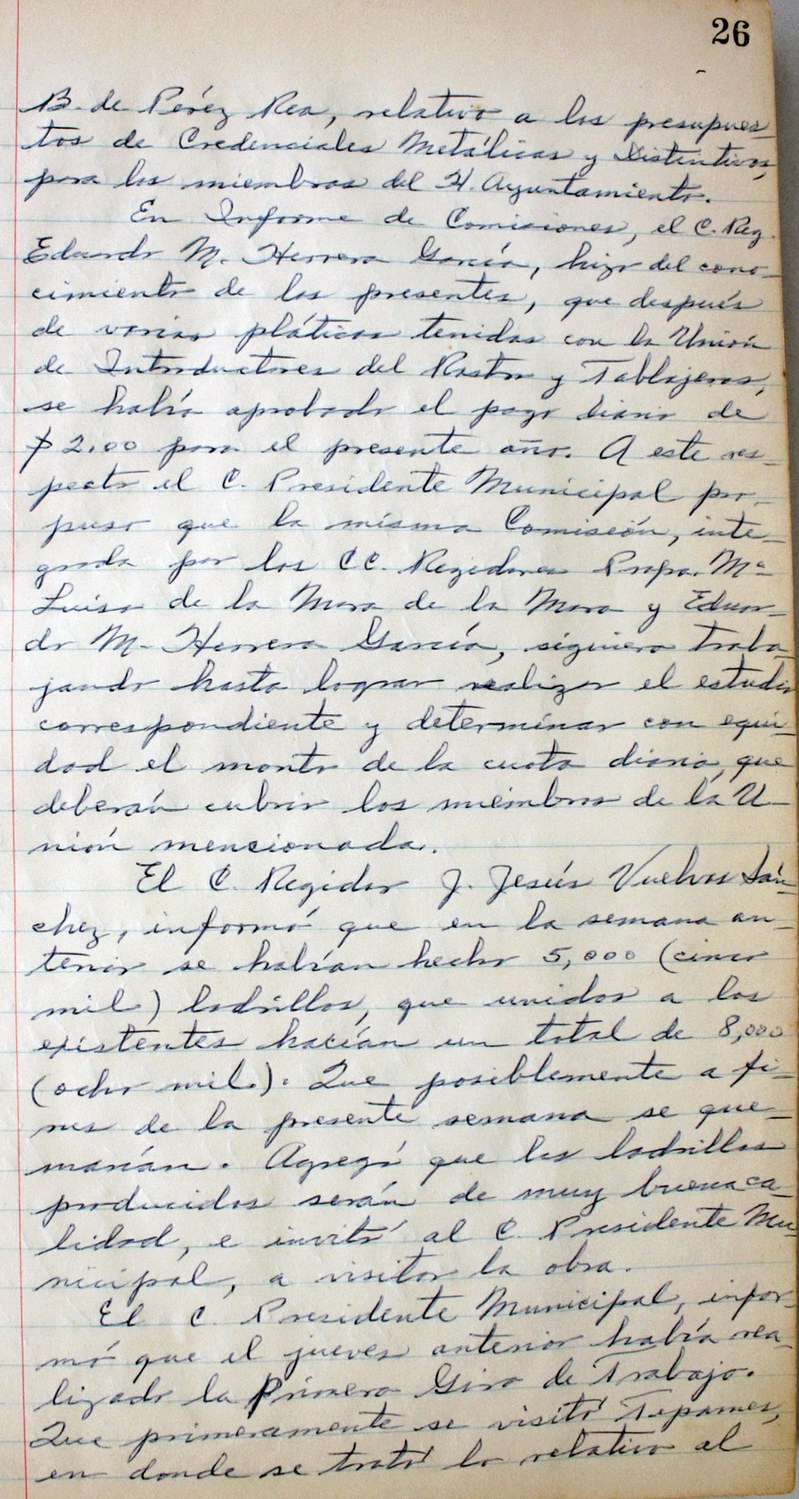 26
B. de Pérez Rea, relativo a los presupues-
tos de Credenciales Metálicas y Distintivos,
para los miembros del H. Ayuntamiento.
En Informe de Comisiones, el C. Reg.
Eduardo M. Herrera García, hizo del cono-
cimiento de los presentes, que después
de varias pláticas tenidas con la Unión
de Introductores del Rastro y Tablajeros,
se había aprobado el pago diario de
$ 2.00 para el presente año. A este res-
pecto el C. Presidente Municipal pro-
puso que la misma Comisión, inte-
grada por los CC. Regidores Profra. Ma
Luisa de la Mora de la Mora y Eduar-
do M. Herrera García, siguiera traba-
jando hasta lograr realizar el estudio
correspondiente y determinar con equi-
dad el monto de la cuota diaria, que
deberán cubrir los miembros de la U-
nión mencionada.
El C. Regidor J. Jesús Vuelvas Sán-
chez, informó que en la semana an-
terior se habían hecho 5,000 (cinco
mil) ladrillos, que unidos a los
existentes hacían un total de 8,000
(ocho mil). Que posiblemente a fi-
nes de la presente semana se que-
marían. Agregó que los ladrillos
producidos serán de muy buena ca-
lidad, e invitó al C. Presidente Mu-
nicipal, a visitar la obra.
El C. Presidente Municipal, infor-
mó que el jueves anterior había rea-
lizado la Primera Gira de Trabajo.
Que primeramente se visitó Tepames,
en donde se trató lo relativo al